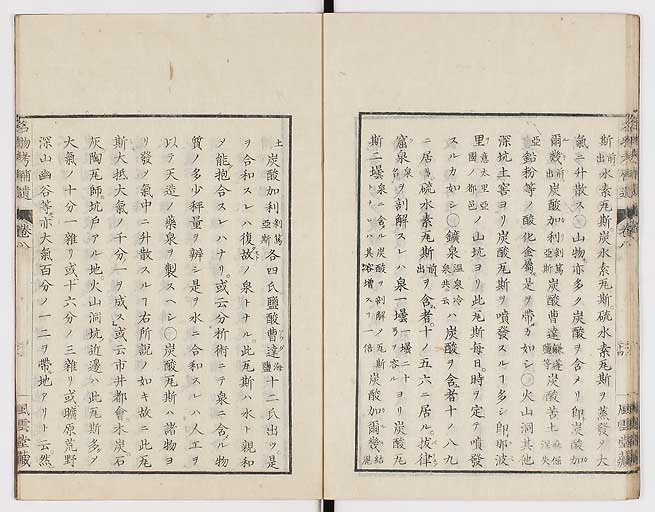 斯前出水素瓦斯炭水素瓦斯硫水素瓦斯ヲ蒸發シ大
氣ニ升散ス○山物亦多ク炭酸ヲ含メリ即炭酸加
爾幾前出炭酸加利剥篤亜斯炭酸曹達炭酸苦土
亞鉛粉等ノ酸化金屬是ヲ帶ルカ如シ○火山洞其他
深坑土窖ヨリ炭酸瓦斯ヲ噴發スルヿ多シ即那波
里意太里亞國ノ都邑ノ山坑ヨリ此瓦斯毎日時ヲ定テ噴發
スルカ如シ○鑛泉温泉冷泉共云ハ炭酸ヲ含ム者十ノ八九
ニ居ル硫水素瓦斯前出ヲ含ム者十ノ五六ニ居ル拔律
窟泉泉名ヲ剖解スレハ泉一壜
斯二壜炭酸加爾幾
土炭酸加利剥篤亜斯各四氏鹽酸曹達海鹽十二氏出ツ是
ヲ合和スレハ復故ノ泉トナル此瓦斯ハ水ト親和
ヲ能抱合スレハナリ或云分析術ニテ泉ニ含ル物
質ノ多少秤量ヲ辨シ是ヲ水ニ合和スレハ人工ヲ
以テ天造ノ藥泉ヲ製スヘシ○炭酸瓦斯ハ諸物ヨ
リ發シ氣中ニ升散スルヿ右所説ノ如キ故ニ此瓦
斯大抵大氣ノ千分一ヲ成ス或云市井都會木炭石
灰陶瓦師坑戸アル地火山洞坑近邊ハ此瓦斯多シ
大氣ノ十分一雜リ或十六分ノ三雜リ或曠原荒野
深山幽谷等亦大氣百分ノ一二ヲ帶地アリト云然
風雲堂藏
風雲堂藏